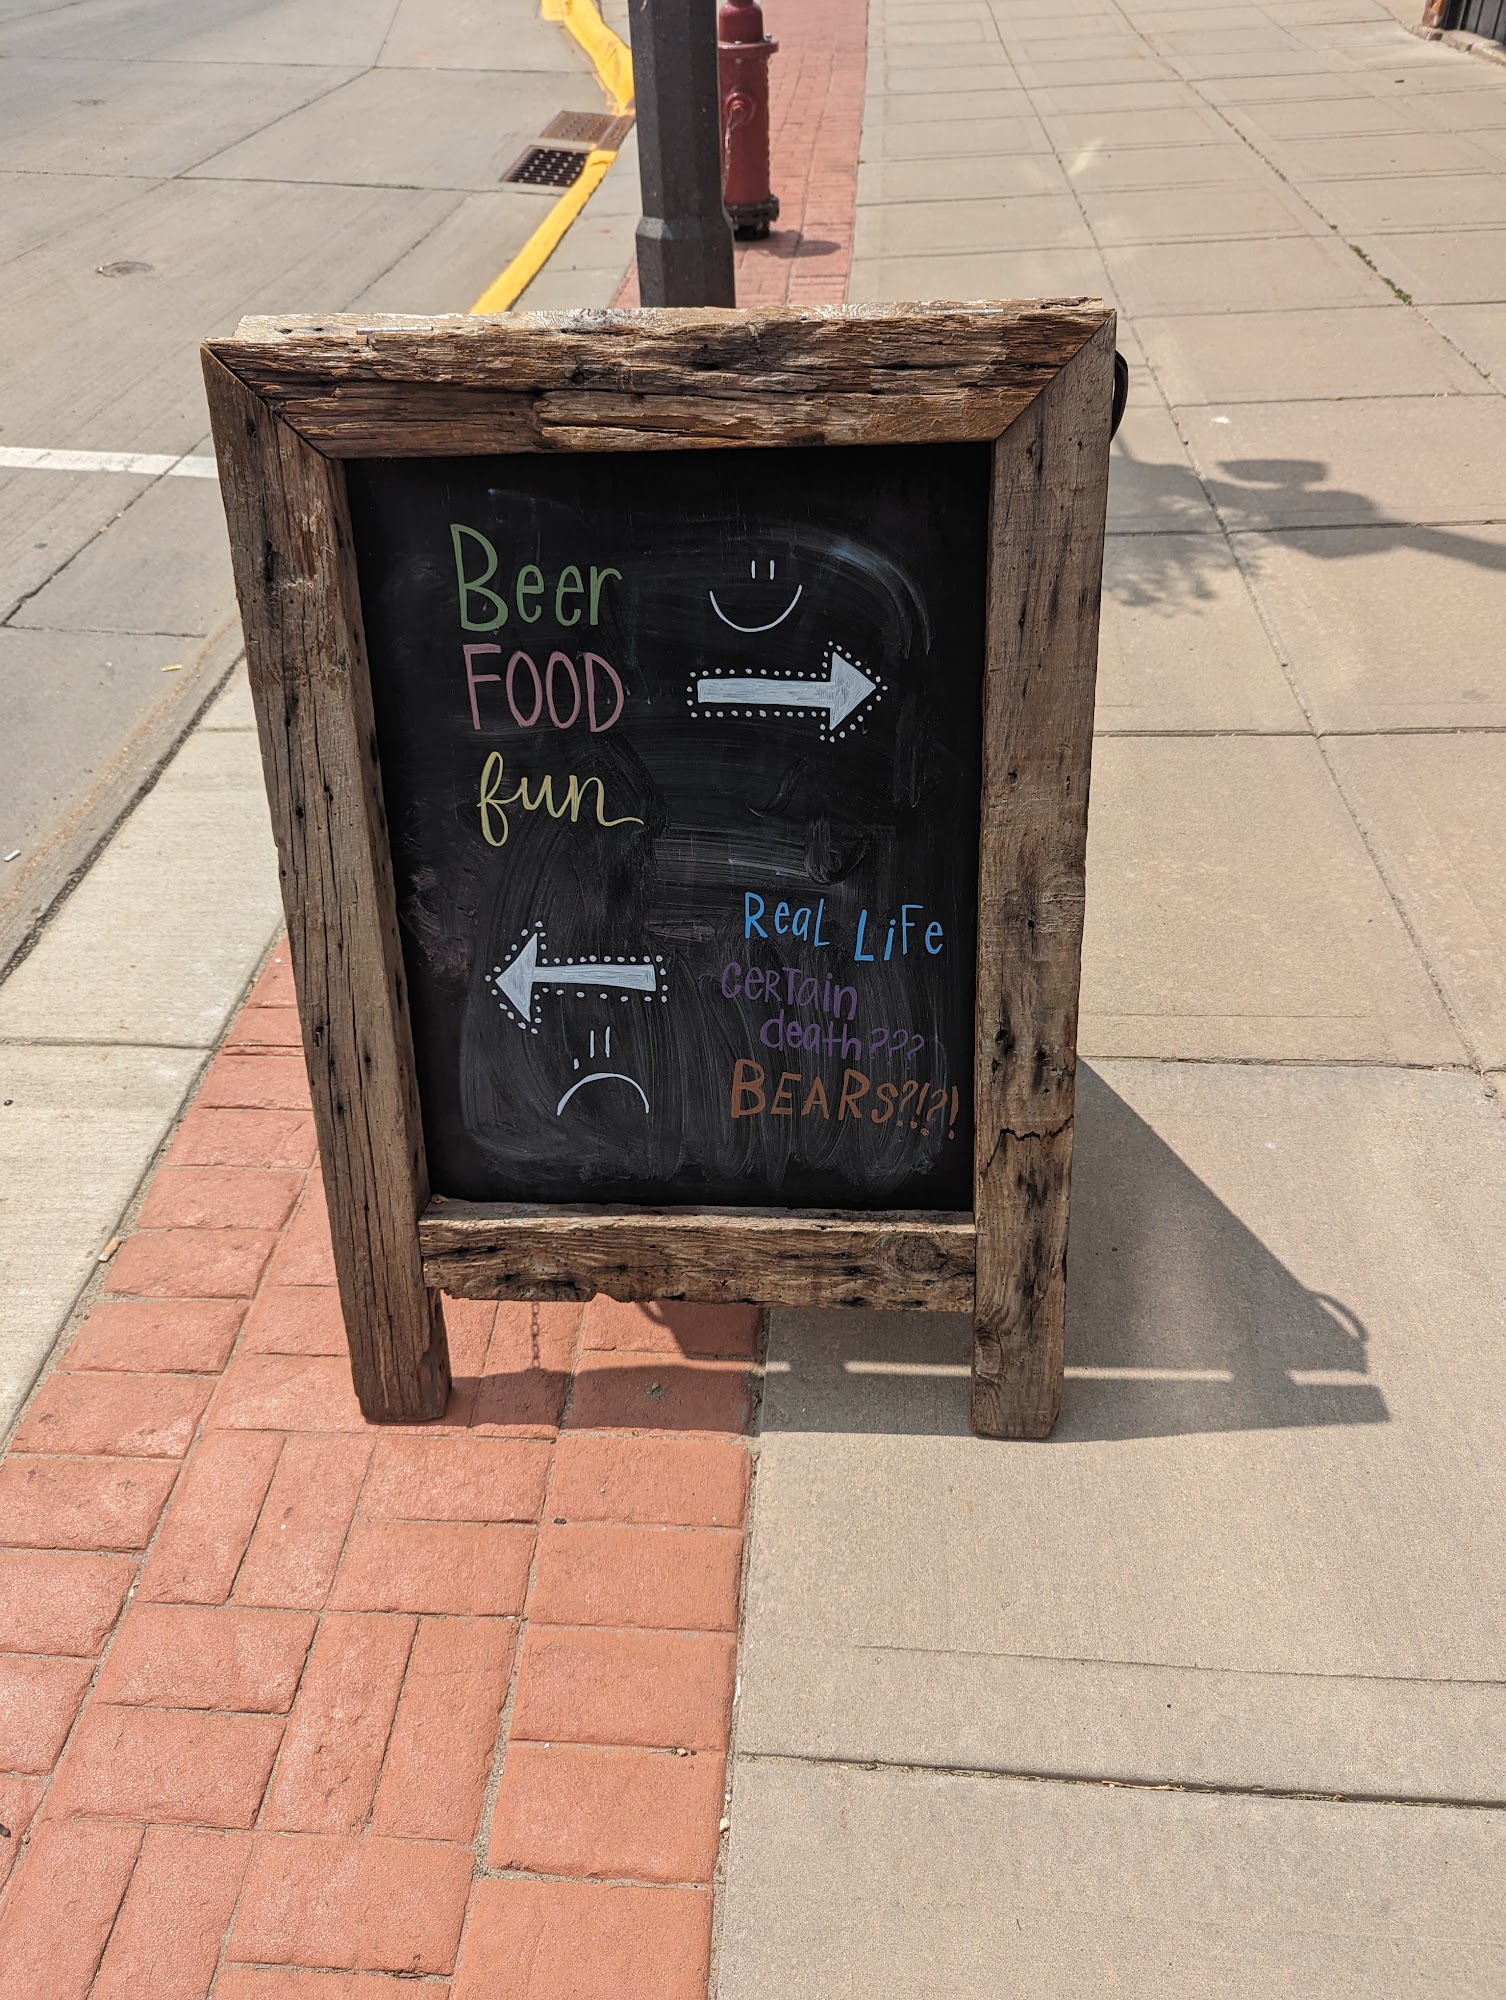 Beer
FOOD
fun
ReaL LiFe
CerTain
death???
BEARS?!?!